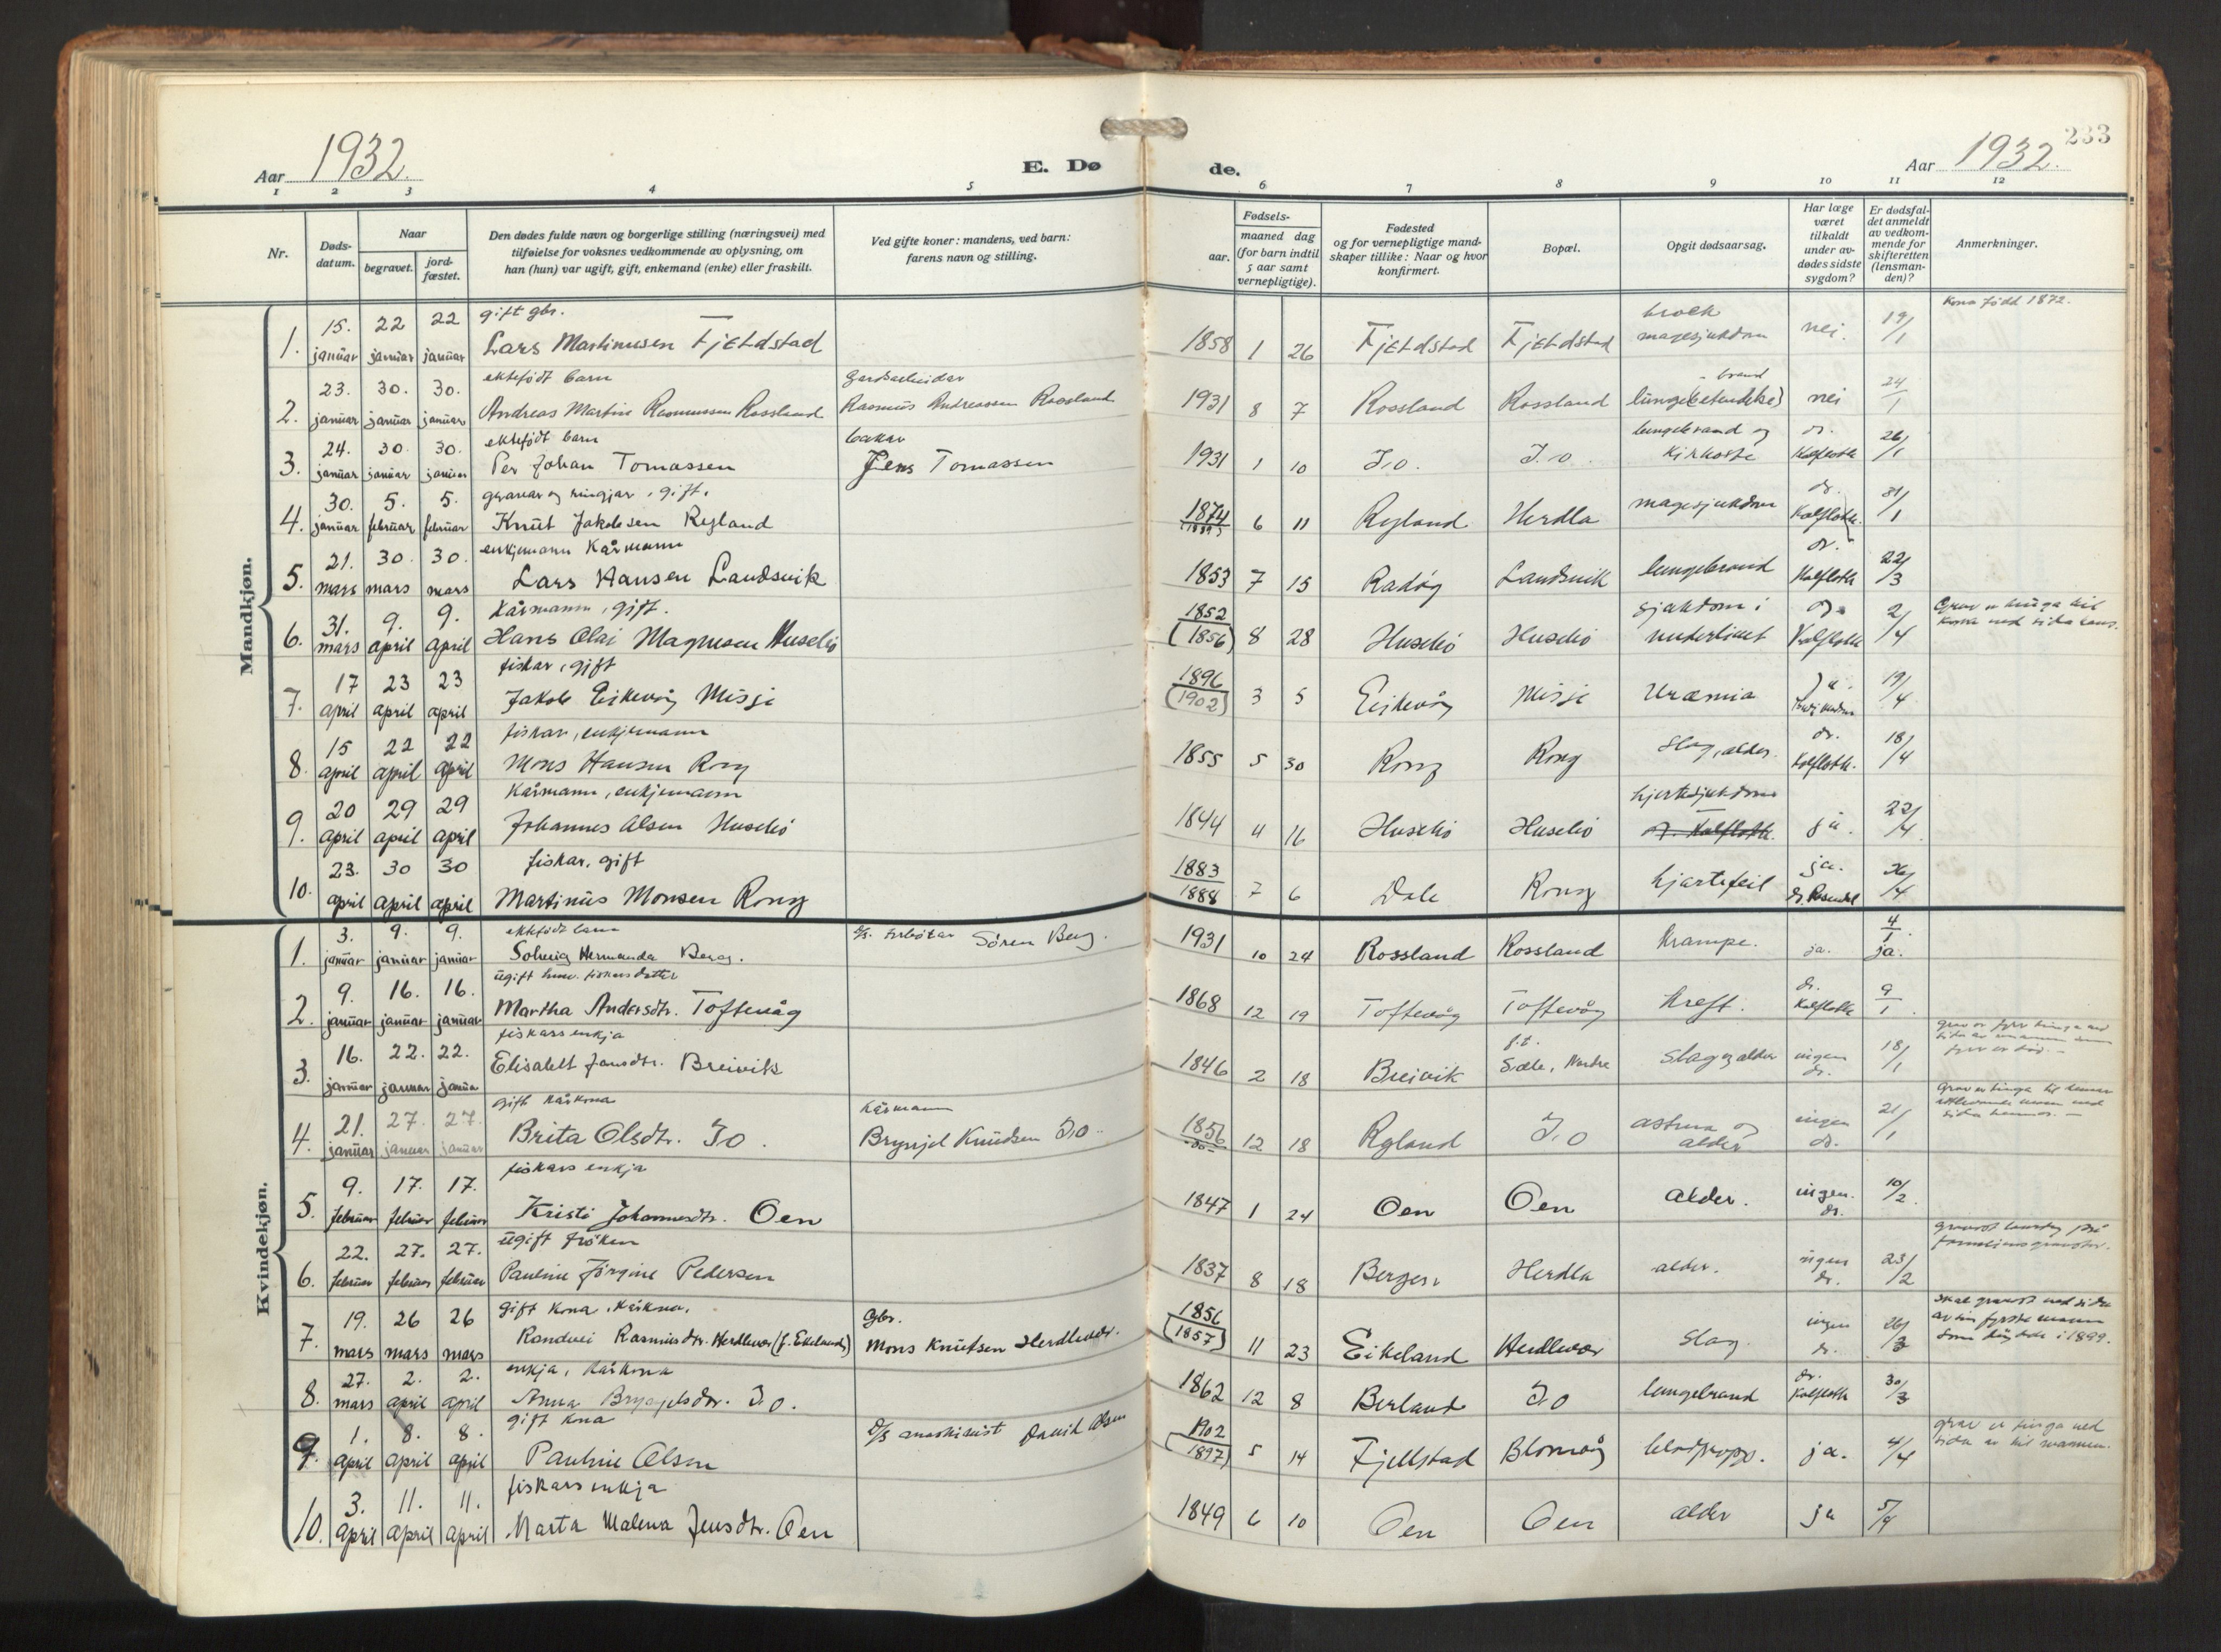 233
Aar 1932.
E. Døde.
Aar 1932.
1 2 3 4 5 6 7 8 9 10 11 12
Nr.
Døds-
datum.
Naar
begravet.
jord-
fæstet.
Den dødes fulde navn og borgerlige stilling (næringsvei) med
tilføielse for voksnes vedkommende av oplysning, om
han (hun) var ugift, gift, enkemand (enke) eller fraskilt.
Ved gifte koner: mandens, ved barn:
farens navn og stilling.
Fødsels-
aar.
maaned dag
(for barn indtil
5 aar samt
vernepligtige).
Fødested
og for vernepligtige mand-
skaper tillike: Naar og hvor
konfirmert.
Bopæl.
Opgit dødsaarsag.
Har læge
været
tilkaldt
under av-
dødes sidste
sygdom?
Er dødsfal-
det anmeldt
av vedkom-
mende for
skifteretten
(lensman-
den)?
Anmerkninger.
Mandkjøn.
gift gbr. brock Kona fødd 1872.
1. 15. januar 22 januar 22 januar Lars Martinusen Fjeldstad 1858 1 26 Fjeldstad Fjeldstad magesjukdom nei. 19/1
ektefødt barn Gardsarbeidar - brand
2. 23. januar 30. januar 30. januar Andreas Martin Rasmussen Rossland Rasmus Andreassen Rossland 1931 8 7 Rossland Rossland lunge(betendelse) nei 24/1
ektefødt barn bakar lungebrand og dr.
3. 24. januar 30. januar 30. januar Per Johan Tomassen Jens Tomassen 1931 1 10 I.o. I.o. Kikhoste Kalfloth 26/1
gravar og ringjar, gift. dr.
4. 30. januar 5. februar 5. februar Knut Jakobsen Rygland 1874 6 11 Rygland Herdla magesjukdom Kalfloth. 31/1
enkjemann Kårmann dr.
5. 21. mars 30. mars 30. mars Lars Hansen Landsvik 1853 7 15 Radøy Landsvik lungebrand Kalfloth 22/3
Kårmann, gift. 1852 sjukdom i dr. Grav er tinga til
6. 31. mars 9. april 9. april Hans Olai Magnusen Husebø (1856) 8 28 Husebø Husebø underlivet Kalfloth 2/4 kona ved sida hans.
fiskar, gift 1896 ja.
7. 17 april 23 april 23 april Jakob Eikevåg Misje (1902) 3 5 Eikevåg Misje Uræmia 19/4
fiskar, enkjemann dr.
8. 15 april 22 april 22 april Mons Hansen Rong 1855 5 30 Rong Rong Slag, alder. Kalfloth. 18/4
Kårmann, enkjemann hjertesjukdom
9. 20 april 29 april 29 april Johannes Olsen Husebø 1844 4 16 Husebø Husebø dr. Kalfloth. ja. 22/4
fiskar, gift 1883 ja.
10. 23. april 30 april 30 april Martinus Monsen Rong 1888 7 6 Dale Rong hjartefeil dr. Rosendal 26/4
Kvindekjøn.
ektefødt barn
1. 3. januar 9. januar 9. januar Solveig Hermanda Berg. Søren Berg. 1931 10 24 Rossland Rossland Krampe. ja. 4/1 ja.
ugift fiskarsdotter dr.
2. 9. januar 16. januar 16. januar Martha Andersdtr. Toftevåg 1868 12 19 Toftevåg Toftevåg Kreft. Kalfloth 9/1
fiskars enkja f.t.
3. 16. januar 22. januar 22. janua Elisabet Jansdtr. Breivik 1846 2 18 Breivik Sæle, Nordre Slag og alder ingen dr. 18/1
gift kårkona Kårmann
4. 21. januar 27. januar 27. januar Brita Olsdtr. I.o. Brynjel Knudsen I.o. 1856 12 18 Rygland I.o astma og alder ingen dr. 21/1
fiskars enkja
5. 9. februar 17. februar 17. februar Kristi Johannesdtr. Oen 1847 1 24 Oen Oen alder. ingen. dr. 10/2
ugift frøken
6. 22. februar 27. februar 27. februar Pauline Jørgine Pedersen 1837 8 18 Bergen Herdla alder. ingen dr. 23/2
gift kona, kårkona. Gbr. 1856 Skal gravest ved sida
7. 19. mars 26 mars 26 mars Randvei Rasmusdtr. Herdlevær (f. Eikeland) Mons Knutsen Herdlevær. (1857) 11 23 Eikeland Herdlevær Slag ingen dr. 26/3 av sin fyrste mann som døydde i 1899.
enkja, kårkona dr.
8. 27. mars 2. april 2. april Anna Brynjelsdtr. I.o. 1862 12 8 Berland I.o lungebrand Kalfloth 30/3
gift kona D/S maskinist David Olsen 1902 grav er tinga ved
9. 1. april 8. april 8. april Pauline Olsen (1897) 5 14 Fjellstad Blomvåg blodpropp. ja. 4/4 sida av til mannen.
fiskars enkja
10. 3. april 11. april 11. april Marta Malena Jensdtr. Oen 1849 6 10 Oen Oen alder ja 5/4